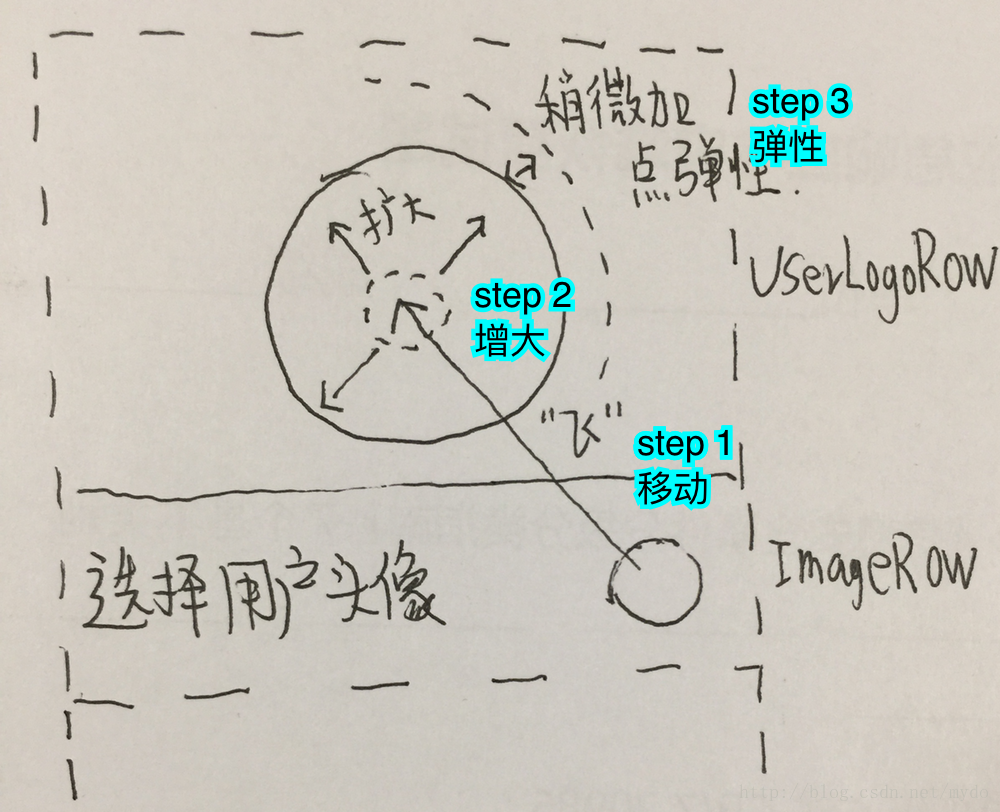 稍微加
点弹性.
step 3
弹性
扩大
UserLogoRow
step 2
增大
"飞"
step 1
移动
选择用户头像
ImageRow